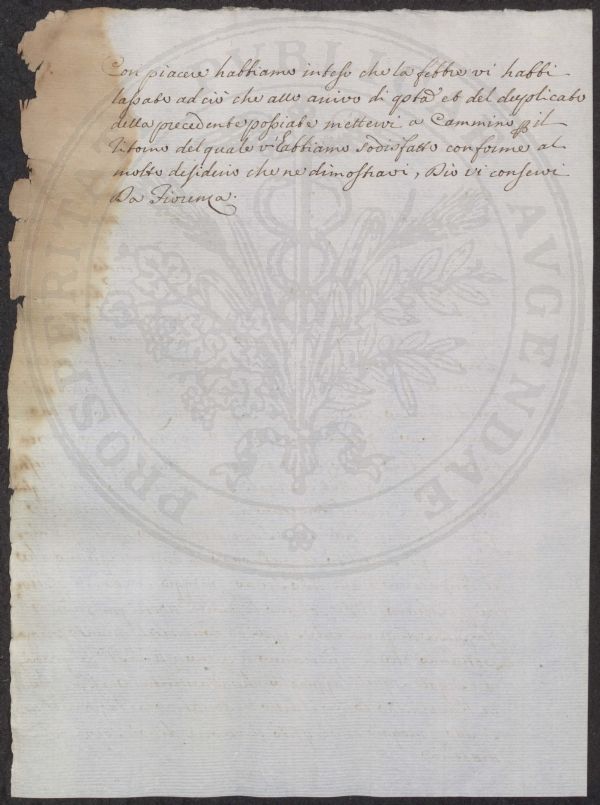 Con piacere habbiamo inteso che la febbre vi habbi
lassato ad ciò che allo arrivo di qsta et del duplicato
della precedente possiate mettervi a Cammino p il
ritorno del quale v'habbiamo sodisfatto conforme al
molto desiderio che ne dimostravi, Dio vi conservi
Da Fiorenza.
PROSPERITATI PUBLICAE AVGENDAE